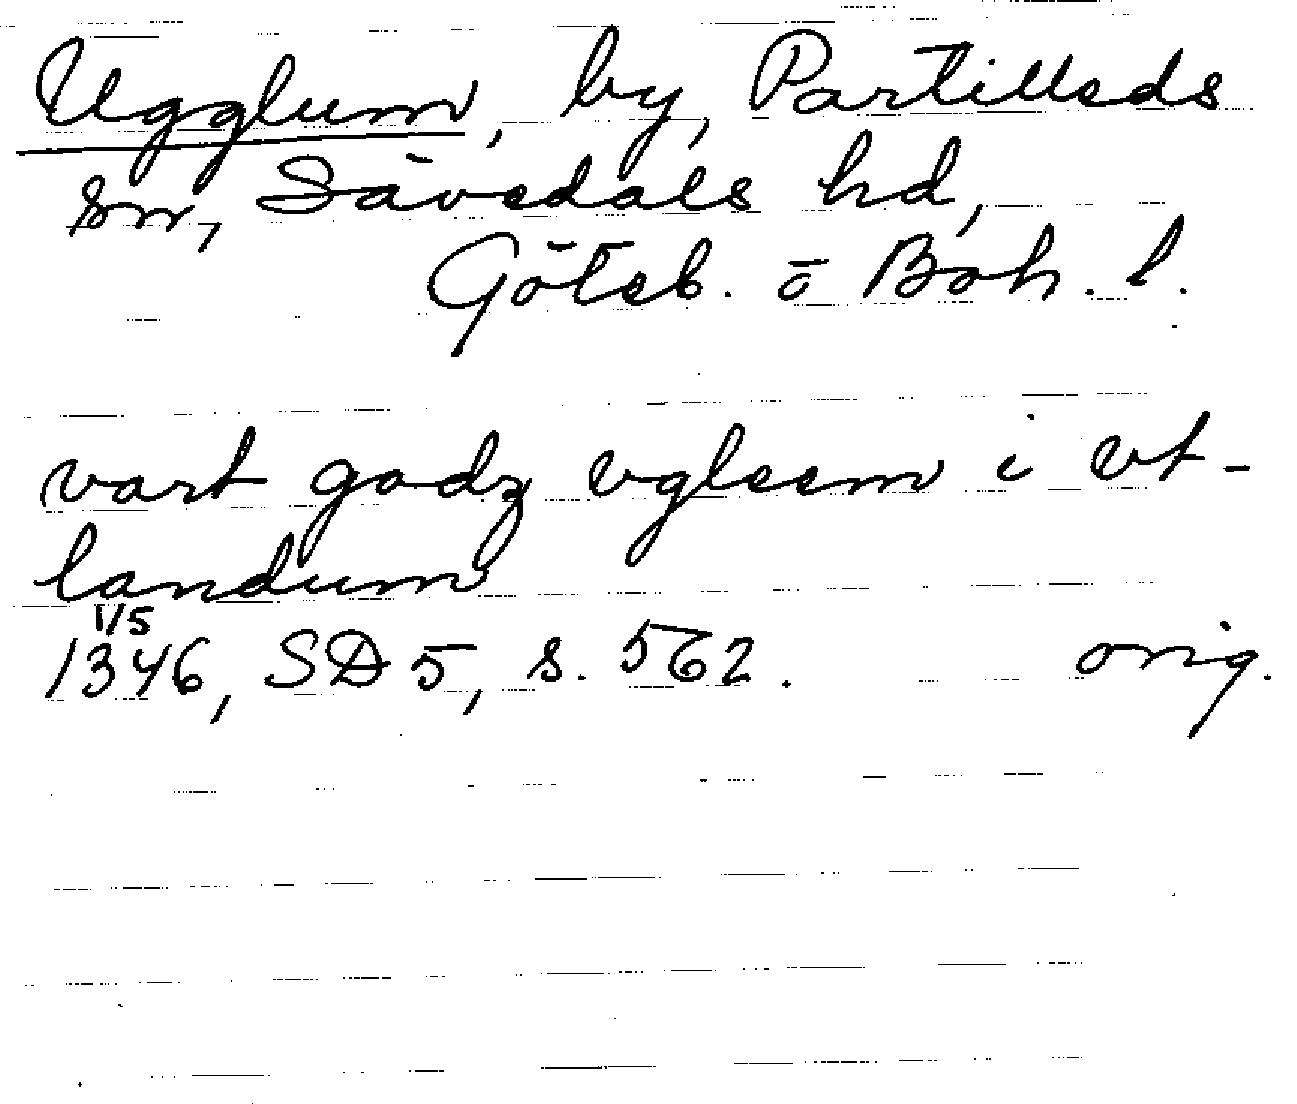 Ugglum, by, Partilleds
sn, Sävedals hd,
Göteb. o Boh. l.
vart godz vgleem i vt-
landum
1/5
1346, SD 5, s. 562. orig.